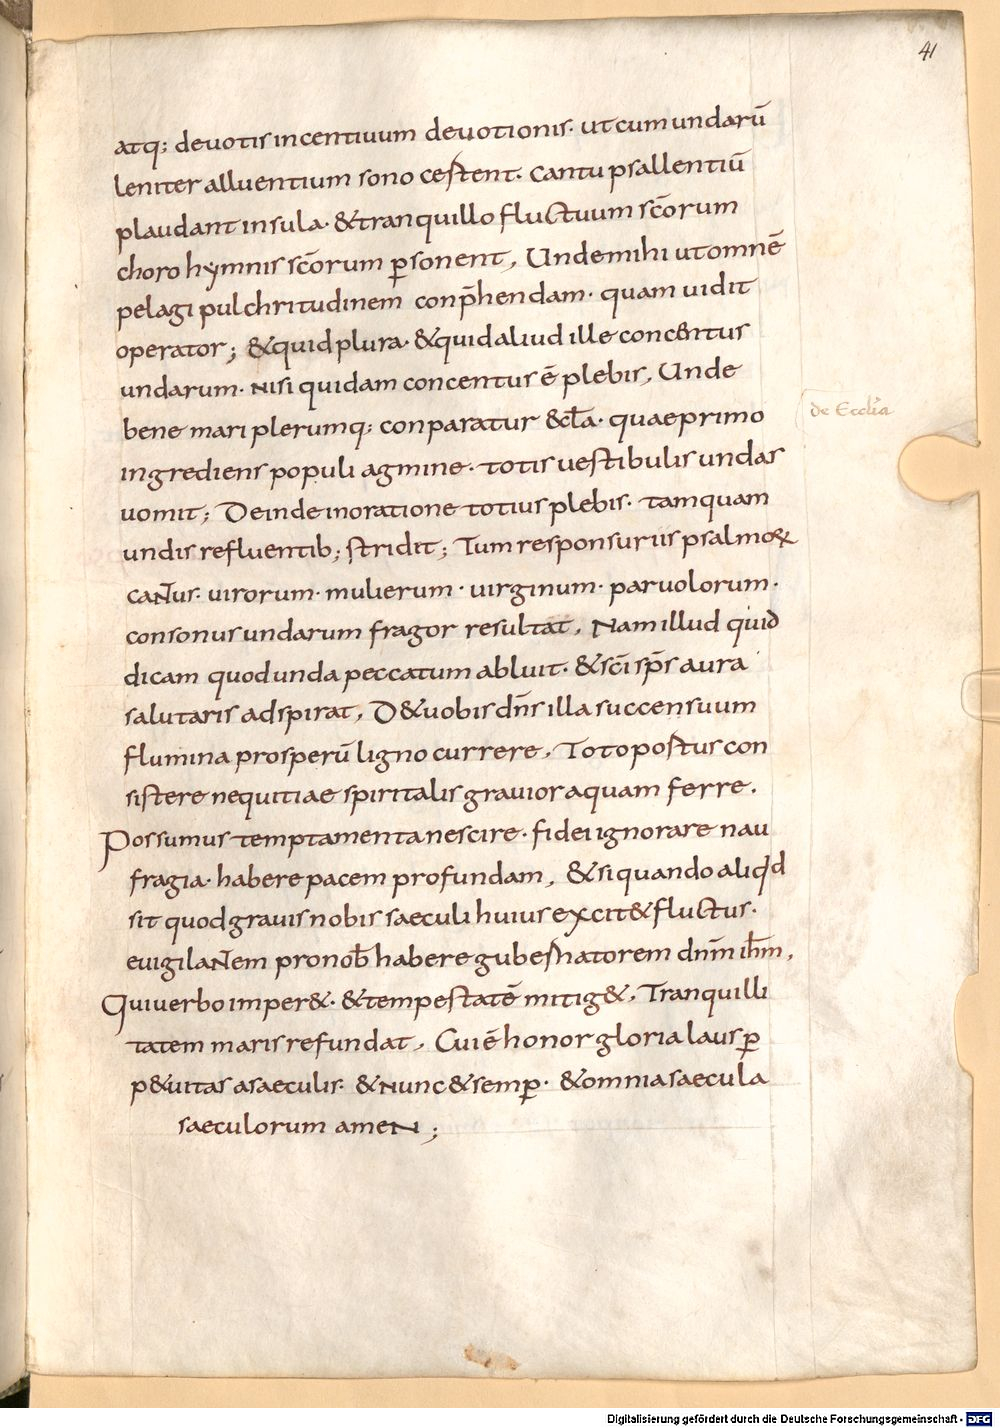 41
atq; deuotis incentiuum deuotionis· ut cum undarū
leniter alluentium sono cestent· cantu psallentiū
plaudant insula· &tranquillo fluctuum scōrum
choro hymnis scōrum p̱sonent, Unde mihi ut omnē
pelagi pulchritudinem conp̄hendam· quam uidit
operator; &quid plura· &quid aliud ille concentus
undarum· nisi quidam concentus ē plebis, Unde
bene mari plerumq; conparatur &cl̄a· quae primo
ingrediens populi agmine· totis uestibulis undas
uomit; Deinde in oratione totius plebis· tamquam
undis refluentib; stridit; Tum responsuriis psalmoꝝ
cantus· uirorum· mulierum· uirginum· paruolorum·
consonus undarum fragor resultat, Nam illud quid
dicam quod unda peccatum abluit· &sc̄i sp̄s aura
salutaris adspirat, D&uobis dn̄s illa succensuum
flumina prosperū ligno currere, Toto postus con
sistere nequitiae spiritalis grauior aquam ferre.
Possumus temptamenta nescire· fidei ignorare nau
fragia· habere pacem profundam, &si quando aliqd
sit quod grauis nobis saeculi huius excit& fluctus·
euigilantem pro nob̄ habere gubernatorem dn̄m ih̄m,
Qui uerbo imper&· &tempestatē mitig&, Tranquilli
tatem maris refundat, Cui ē honor gloria laus p̱
p&uitas a saeculis· &nunc &semp̱· &omnia saecula
saeculorum amen;
de Eccl̄ia
Digitalisierung gefördert durch die Deutsche Forschungsgemeinschaft - DFG